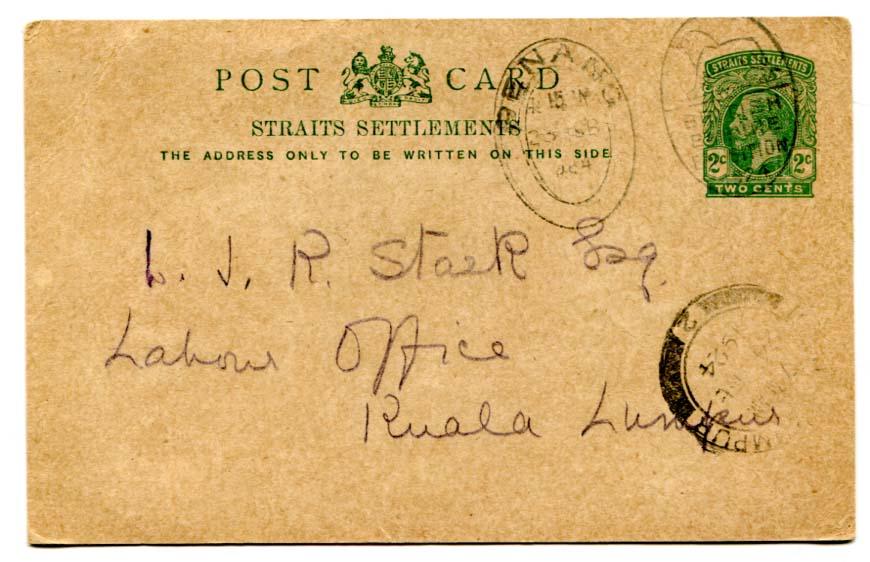 POST CARD
STRAITS SETTLEMENTS
THE ADDRESS ONLY TO BE WRITTEN ON THIS SIDE
PENANG
1924
STRAITS SETTLEMENTS
2c 2c
TWO CENTS
L. J. R. Stark Esq.
Labour Office
Kuala Lumpur
2
1924
MPUR